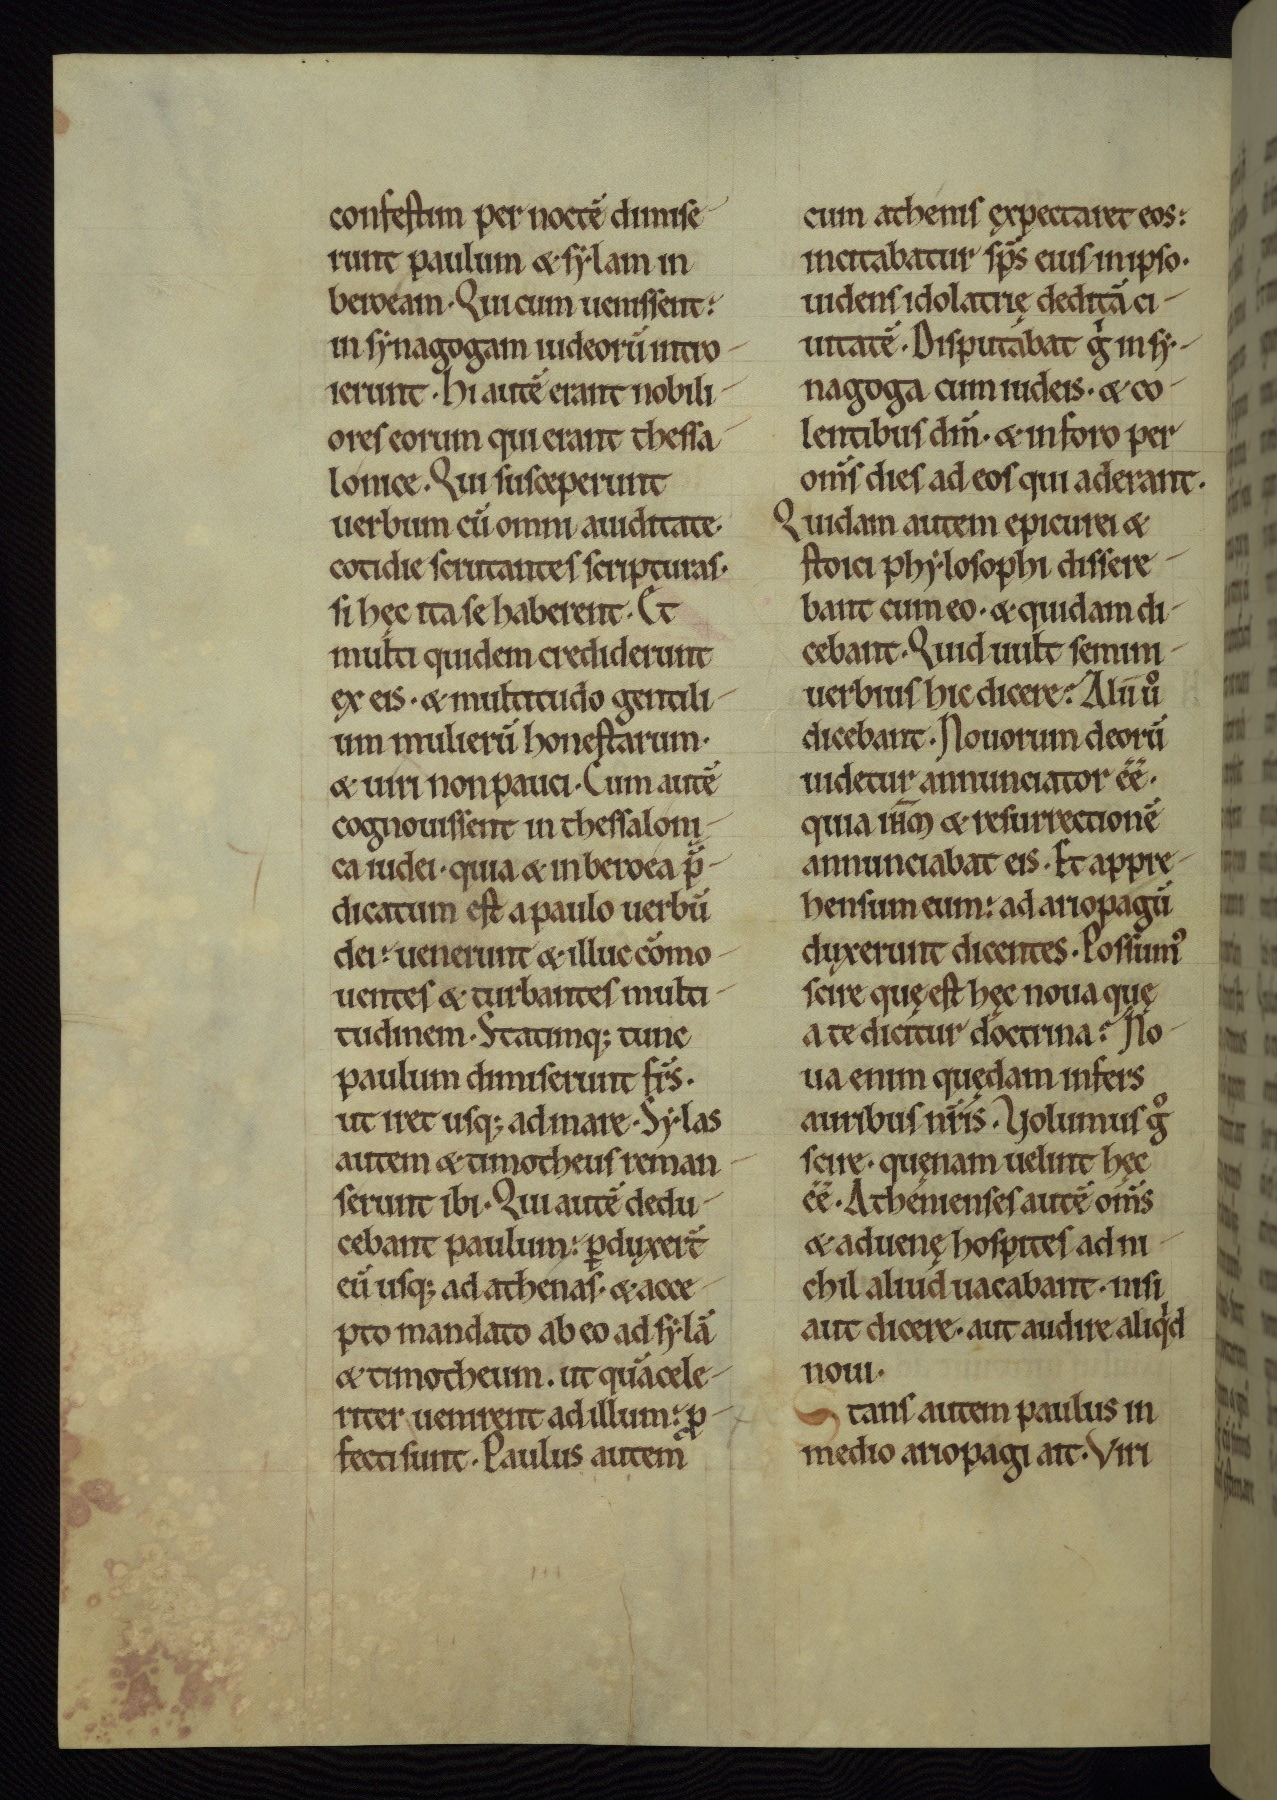 confestim per noctē dimise-
runt paulum & sẏlam in
beroeam. Qui cum uenissent:
in sẏnagogam iudeorū intro-
ierunt. Hi autē erant nobili-
ores eorum qui erant thessa-
lonice. Qui susceperunt
uerbum cū omni auiditate.
cotidie scrutantes scripturas.
si hęc ita se haberent. Et
multi quidem crediderunt
ęx eis. & multitudo gentili-
um mulierū honestarum.
& uiri non pauci. Cum autē
cognouissent in thessaloni-
ca iudei. quia & in beroea p̄-
dicatum est a paulo uerbū
dei: uenerunt & illuc cōmo-
uentes & turbantes multi-
tudinem. Statimq; tunc
paulum dimiserunt fr̄s.
ut iret usq; ad mare. Sẏlas
autem & timotheus reman-
serunt ibi. Qui autē dedu-
cebant paulum: ꝑduxer̄t
eū usq; ad athenas. & acce-
pto mandato ab eo ad sẏlā
& timotheum. ut quā cele-
riter uenirent ad illum: ꝓ-
fecti sunt. Paulus autem
cum athenis ęxpectaret eos:
incitabatur sp̄s eius in ipso.
uidens idolatrię deditā ci-
uitatē. Disputabat gͥ in sẏ-
nagoga cum iudeis. & co-
lentibus dm̄. & in foro per
om̄s dies ad eos qui aderant.
Quidam autem epicurei &
stoici phẏlosophi dissere-
bant cum eo. & quidam di-
cebant. Quid uult semini-
uerbius hic dicere? Alii uͦ
dicebant. Nouorum deorū
uidetur annunciator ēē.
quia ih̄m & resurrectionē
annunciabat eis. Et appre-
hensum eum: ad ariopagū
duxerunt dicentes. Possumꝰ
scire quę est hęc noua quę
a te dicitur doctrina? No-
ua enim quędam infers
auribus nr̄is. Volumus gͦ
scire. quęnam uelint hęc
ēē. Athenienses autē om̄s
& aduenę hospites ad ni-
chil aliud uacabant. nisi
aut dicere. aut audire aliqͥd
noui.
Stans autem paulus in
medio ariopagi ait. Viri